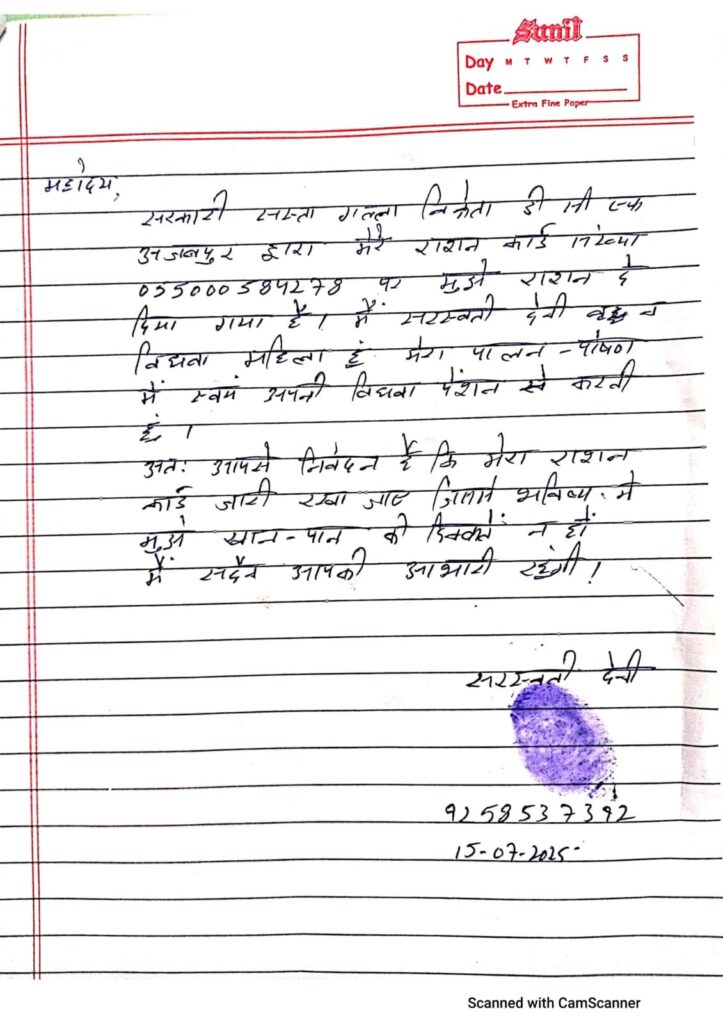 Sunil
Day M T W T F S S
Date
Extra Fine Paper
महोदय,
सरकारी सस्ता गल्ला विक्रेता डी सी एफ
अजबपुर द्वारा मेरे राशन कार्ड संख्या
055000584278 पर मुझे राशन दे
दिया गया है। मैं सरस्वती देवी वृद्ध व
विधवा महिला हूं मेरा पालन-पोषण
मैं स्वयं अपनी विधवा पेंशन से करती
हूं।
अतः आपसे निवेदन है कि मेरा राशन
कार्ड जारी रखा जाए जिससे भविष्य में
मुझे खान-पान की दिक्कतें न हों
मैं सदैव आपकी आभारी रहुंगी!
सरस्वती देवी
9258537392
15-07-2025
Scanned with CamScanner